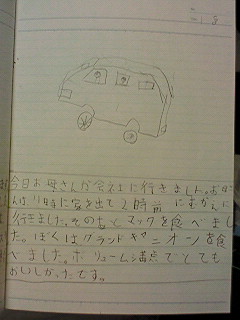 今日お母さんが会社に行きました。お母さ
んは11時に家を出て2時前にむかえに
行きました。そのあとマックを食べまし
た。ぼくはグランドキャニオンを食
べました。ボリューム満点でとても
おいしかったです。